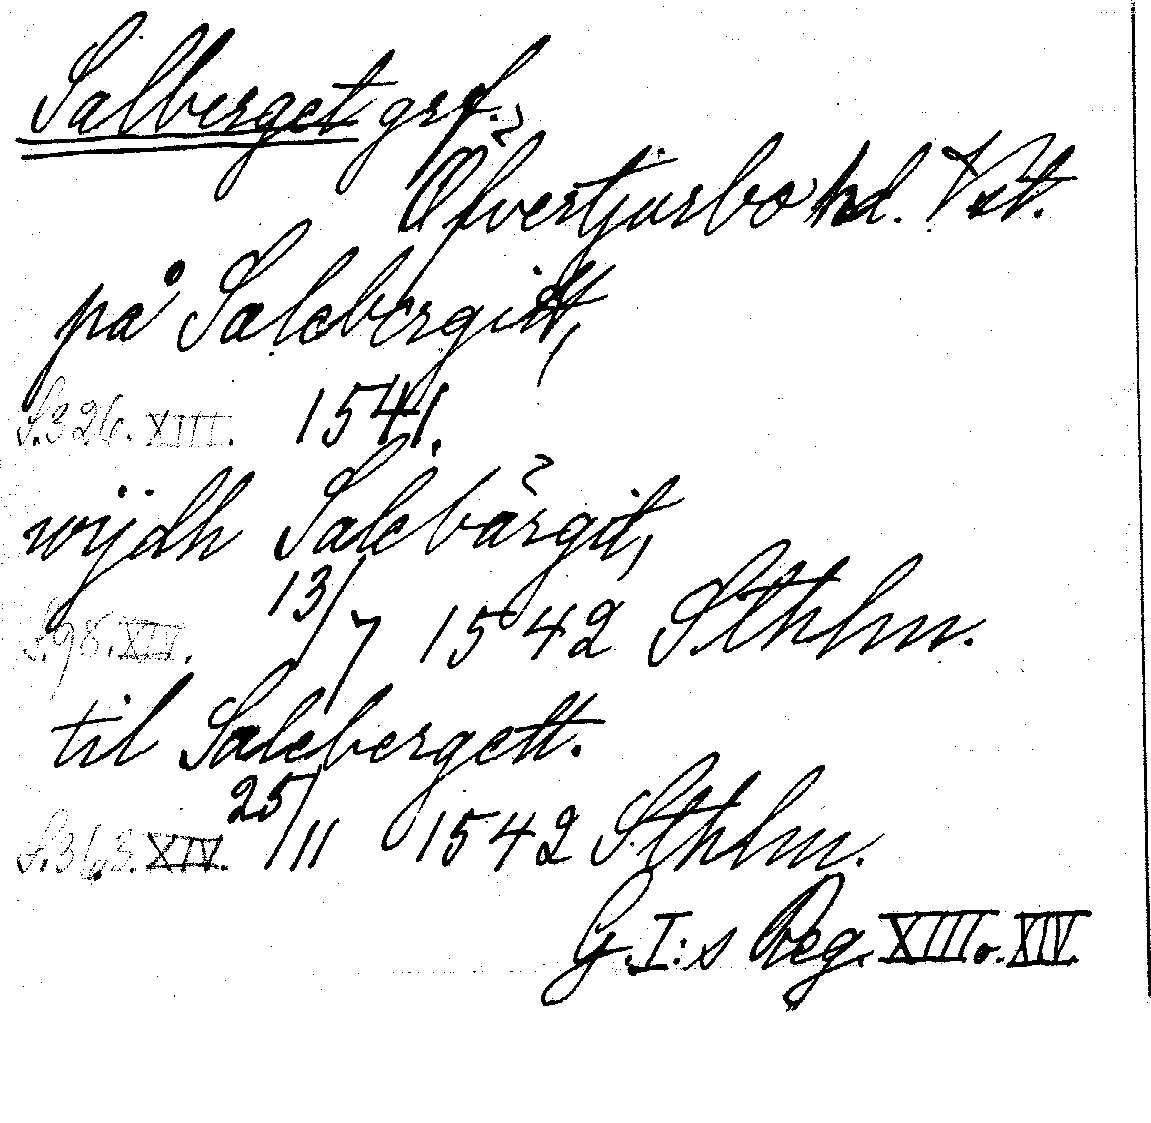 Salberget grf.
Öfvertjurbo hd. Vst.
på Salebergitt,
S.326. XIII. 1541.
wijdh Salebärgit,
S.98. XIV. 13/7 1542 Sthlm.
til Salebergett.
S.363. XIV. 25/11 1542 Sthlm.
G. I:s Reg. XIII o. XIV.